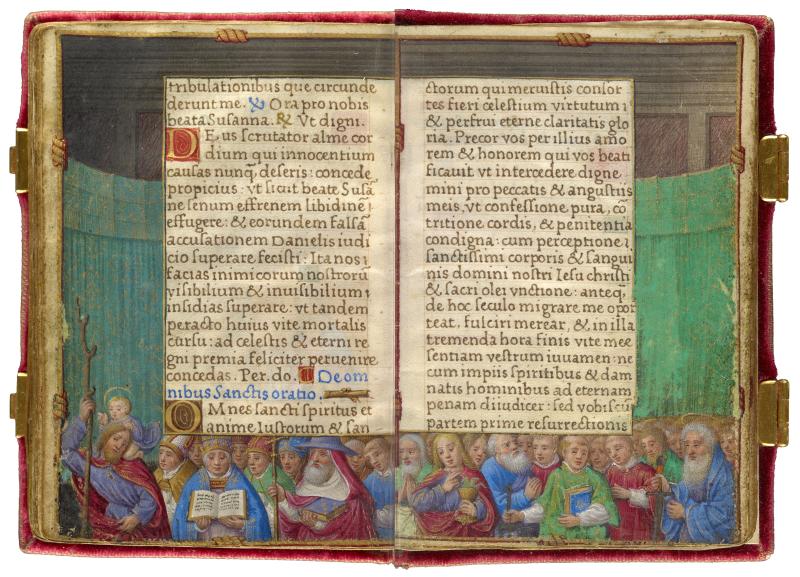 tribulationibus que circunde
derunt me. ℣ Ora pro nobis
beata Susanna. ℟ Vt digni.
DEus scrutator alme cor
dium qui innocentium
causas nunq̃ deseris: concede
propicius: vt sicut beate Susã
ne senum effrenem libidinẽ
effugere: & eorundem falsã
accusationem Danielis iudi
cio superare fecisti: Ita nos
facias inimicorum nostrorũ
visibilium & inuisibilium
insidias superare: vt tandem
peracto huius vite mortalis
cursu: ad celestis & eterni re
gni premia feliciter peruenire
concedas. Per. do. De om
nibus Sanctis oratio.
OMnes sancti spiritus et
anime Iustorum & san
ctorum qui meruistis consor
tes fieri celestium virtutum
& perfrui eterne claritatis glo
ria. Precor vos per illius amo
rem & honorem qui vos beati
ficauit vt intercedere digne
mini pro peccatis & angustiis
meis, vt confessione pura, cõ
tritione cordis, & penitentia
condigna: cum perceptione
sanctissimi corporis & sangui
nis domini nostri Iesu christi
& sacri olei vnctione: anteq̃
de hoc seculo migrare me opor
teat, fulciri merear, & in illa
tremenda hora finis vite mee
sentiam vestrum iuuamen: ne
cum impiis spiritibus & dam
natis hominibus ad eternam
penam diiudicer: sed vobiscũ
partem prime resurrectionis